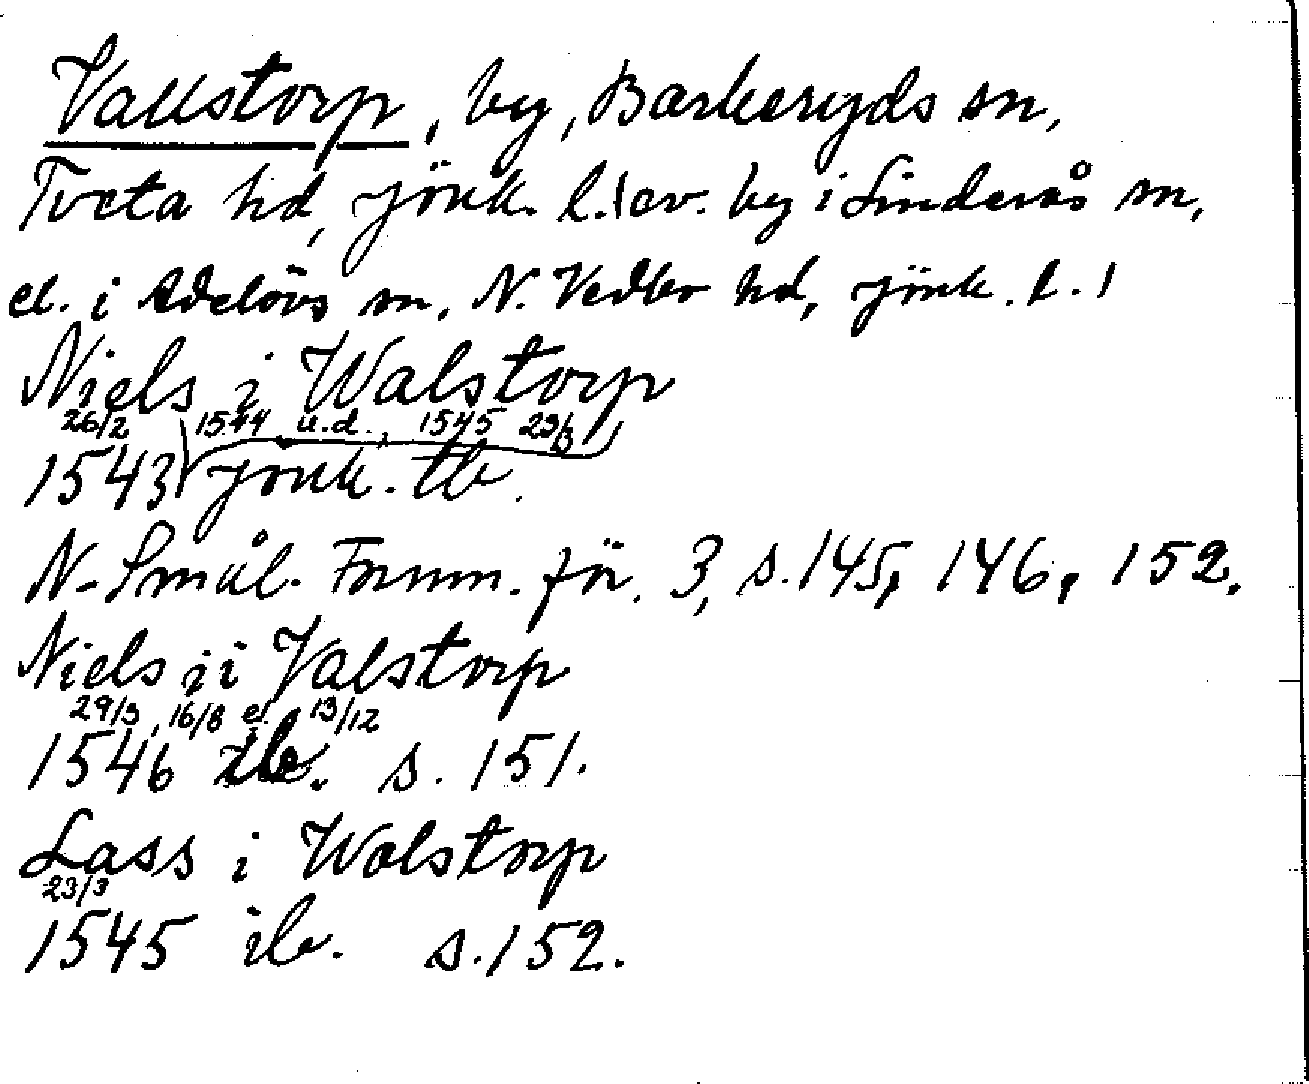 Vallstorp, by, Barkeryds sn,
Tveta hd, Jönk. l. (ev. by i Linderås sn,
el. i Adelövs sn, N. Vedbo hd, Jönk. l. )
Niels i Walstorp
26/2 1544 u.d., 1545 23/3
1543 Jönk. tb.
N. Smål. Fornm. för. 3, s. 145, 146, 152.
Niels ii Valstorp
29/3, 16/8 el. 13/12
1546 ib. s. 151.
Lass i Walstorp
23/3
1545 ib. s. 152.